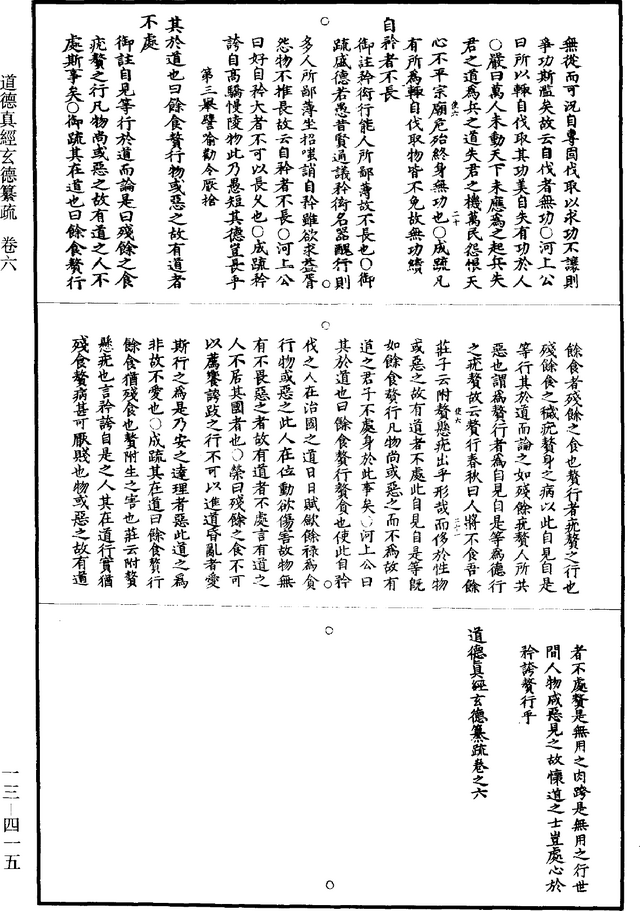 道德真經玄德纂疏 卷六
一三—四一五
無從而可況自專固伐取以求功不讓則
爭功斯濫矣故云自伐者無功○河上公
曰所以輙自伐取其功美自失有功於人
○嚴曰萬人未動天下未應為之起兵失
君之道為兵之道失君之機萬民怨恨天
心不平宗廟危殆終身無功也○成疏凡
有所為輙自伐取物皆不免故無功績
自矜者不長
御註矜衒行能人所鄙薄故不長也○御
疏盛德若愚昔賢通議矜衒名器醜行則
多人所鄙薄生招嗤誚自矜雖欲求益厝
怨物不推長故云自矜者不長○河上公
曰好自矜大者不可以長久也○成疏矜
誇自高驕慢陵物此乃愚短其德豈長乎
第三舉譬喻勸令厭捨
其於道也曰餘食贅行物或惡之故有道者
不處
御註自見等行於道而論是曰殘餘之食
疣贅之行凡物尚或惡之故有道之人不
處斯事矣○御疏其在道也曰餘食贅行
餘食者殘餘之食也贅行者疣贅之行也
殘餘食之穢疣贅身之病以此自見自是
等行其於道而論之如殘餘疣贅人所共
惡也謂為贅行者為自見自是等為德行
之疣贅故云贅行春秋曰人將不食吾餘
莊子云附贅懸疣出乎形哉而侈於性物
或惡之故有道者不處此自見自是等既
如餘食贅行凡物尚或惡之而不為故有
道之君子不處身於此事矣○河上公曰
其於道也曰餘食贅行贅食也使此自矜
伐之人在治國之道日日賦斂餘祿為貪
行物或惡之此人在位動欲傷害故物無
有不畏惡之者故有道者不處言有道之
人不居其國者也○榮曰殘餘之食不可
以薦饗誇跂之行不可以進道昏亂者愛
斯行之為是乃安之達理者惡此道之為
非故不愛也○成疏其在道曰餘食贅行
餘食猶殘食也贅附生之害也莊云附贅
懸疣也言矜誇自是之人其在道行實猶
殘食贅病甚可厭賤也物或惡之故有道
者不處贅是無用之肉跨是無用之行世
間人物咸惡見之故懷道之士豈處心於
矜誇贅行乎
道德真經玄德纂疏卷之六